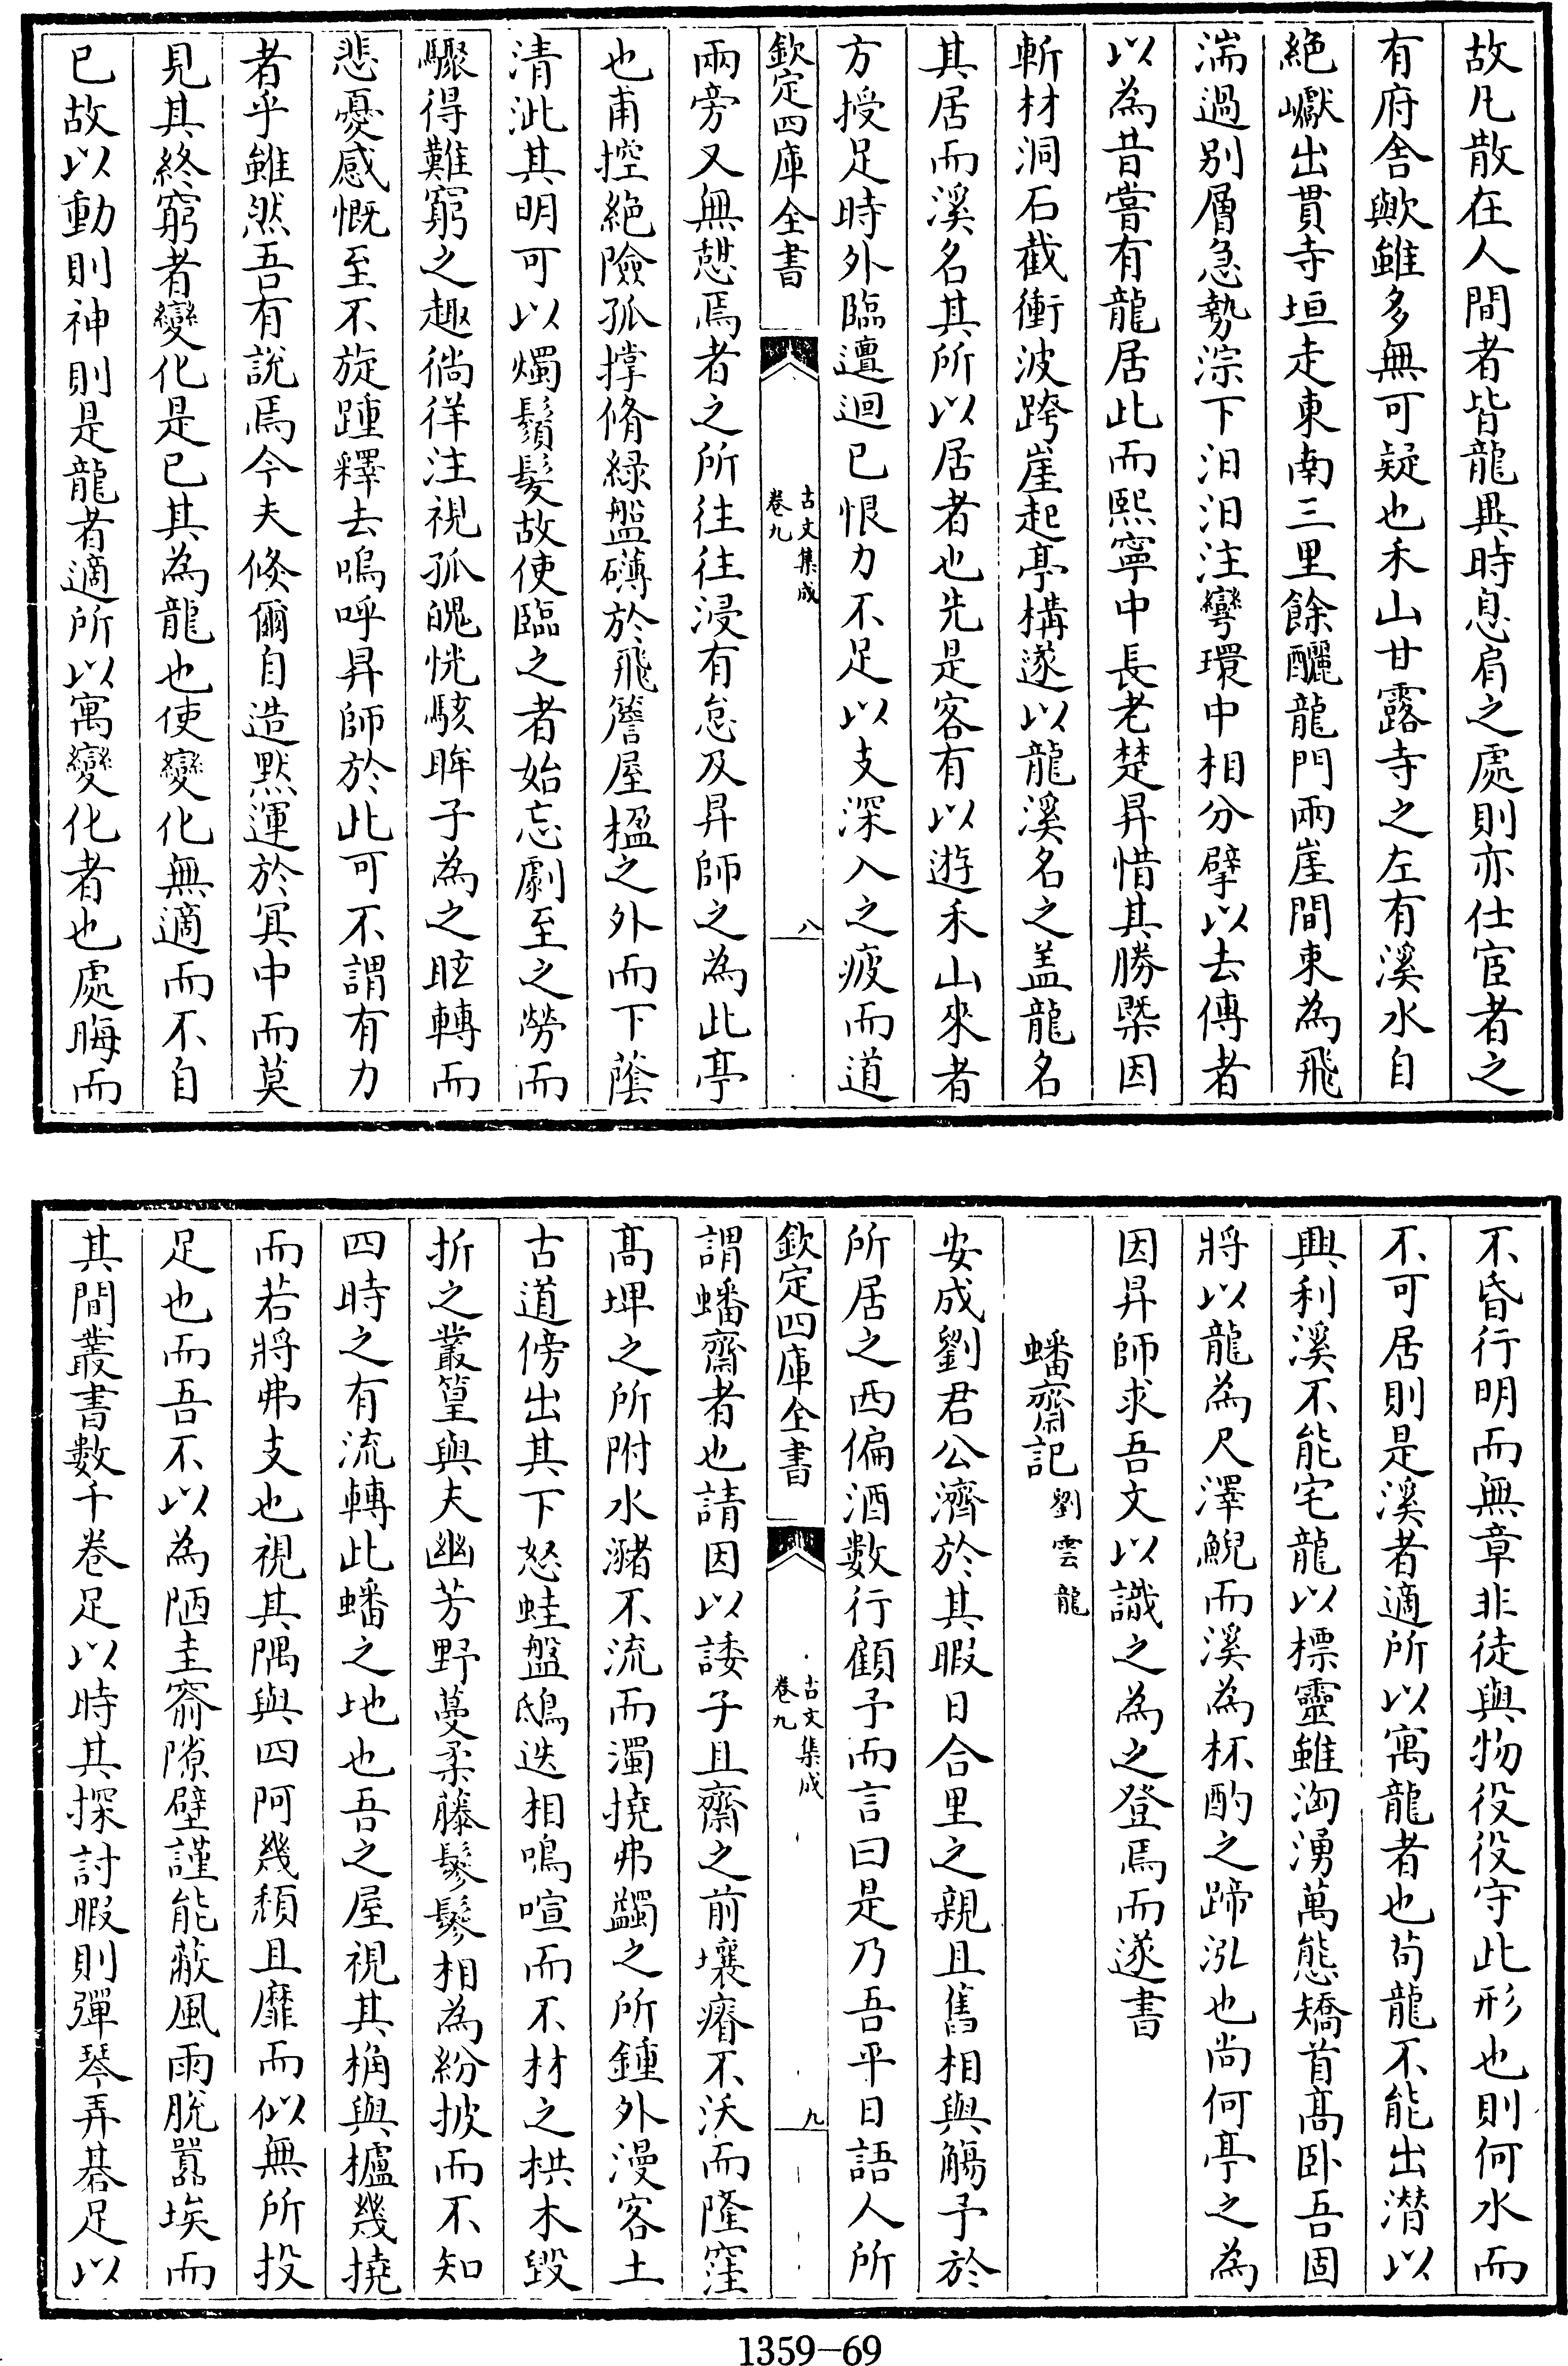 故凡散在人間者皆龍異時息肩之處則亦仕宦者之
有府舍歟雖多無可疑也禾山甘露寺之左有溪水自
絶巘出貫寺垣走東南三里餘釃龍門兩崖間東為飛
湍過别層急勢淙下汩汩注彎環中相分擘以去傳者
以為昔嘗有龍居此而熙寧中長老楚昇惜其勝槩因
斬材洞石截衝波跨崖起亭構遂以龍溪名之盖龍名
其居而溪名其所以居者也先是客有以遊禾山來者
方授足時外臨邅迴已恨力不足以支深入之疲而道
欽定四庫全書
古文集成
卷九
八
兩旁又無憇焉者之所往往浸有怠及昇師之為此亭
也甫控絶險孤撑脩緑盤礴於飛簷屋楹之外而下蔭
清泚其明可以燭鬚髮故使臨之者始忘劇至之勞而
驟得難窮之趣徜徉注視孤䰟恍駭眸子為之眩轉而
悲憂感慨至不旋踵釋去嗚呼昇師於此可不謂有力
者乎雖然吾有説焉今夫倐爾自造黙運於冥中而莫
見其終窮者變化是已其為龍也使變化無適而不自
已故以動則神則是龍者適所以寓變化者也處晦而
不昏行明而無章非徒與物役役守此形也則何水而
不可居則是溪者適所以寓龍者也茍龍不能出潜以
興利溪不能宅龍以標靈雖洶湧萬態矯首髙卧吾固
將以龍為尺澤鯢而溪為杯酌之蹄泓也尚何亭之為
因昇師求吾文以識之為之登焉而遂書
蟠齋記 劉雲龍
安成劉君公濟於其暇日合里之親且舊相與觴予於
所居之西偏酒數行顧予而言曰是乃吾平日語人所
欽定四庫全書
古文集成
卷九
九
謂蟠齋者也請因以諉子且齋之前壤瘠不沃而隆窪
髙埤之所附水瀦不流而濁撓弗蠲之所鍾外漫客土
古道傍出其下怒蛙盤鴟迭相鳴喧而不材之栱木毀
折之叢篁與夫幽芳野蔓柔藤鬖鬖相為紛披而不知
四時之有流轉此蟠之地也吾之屋視其桷與櫨幾撓
而若將弗支也視其隅與四阿幾頽且靡而似無所投
足也而吾不以為陋圭窬隙壁謹能蔽風雨脱嚣埃而
其間叢書數千卷足以時其探討暇則彈琴弄棊足以
1359-69